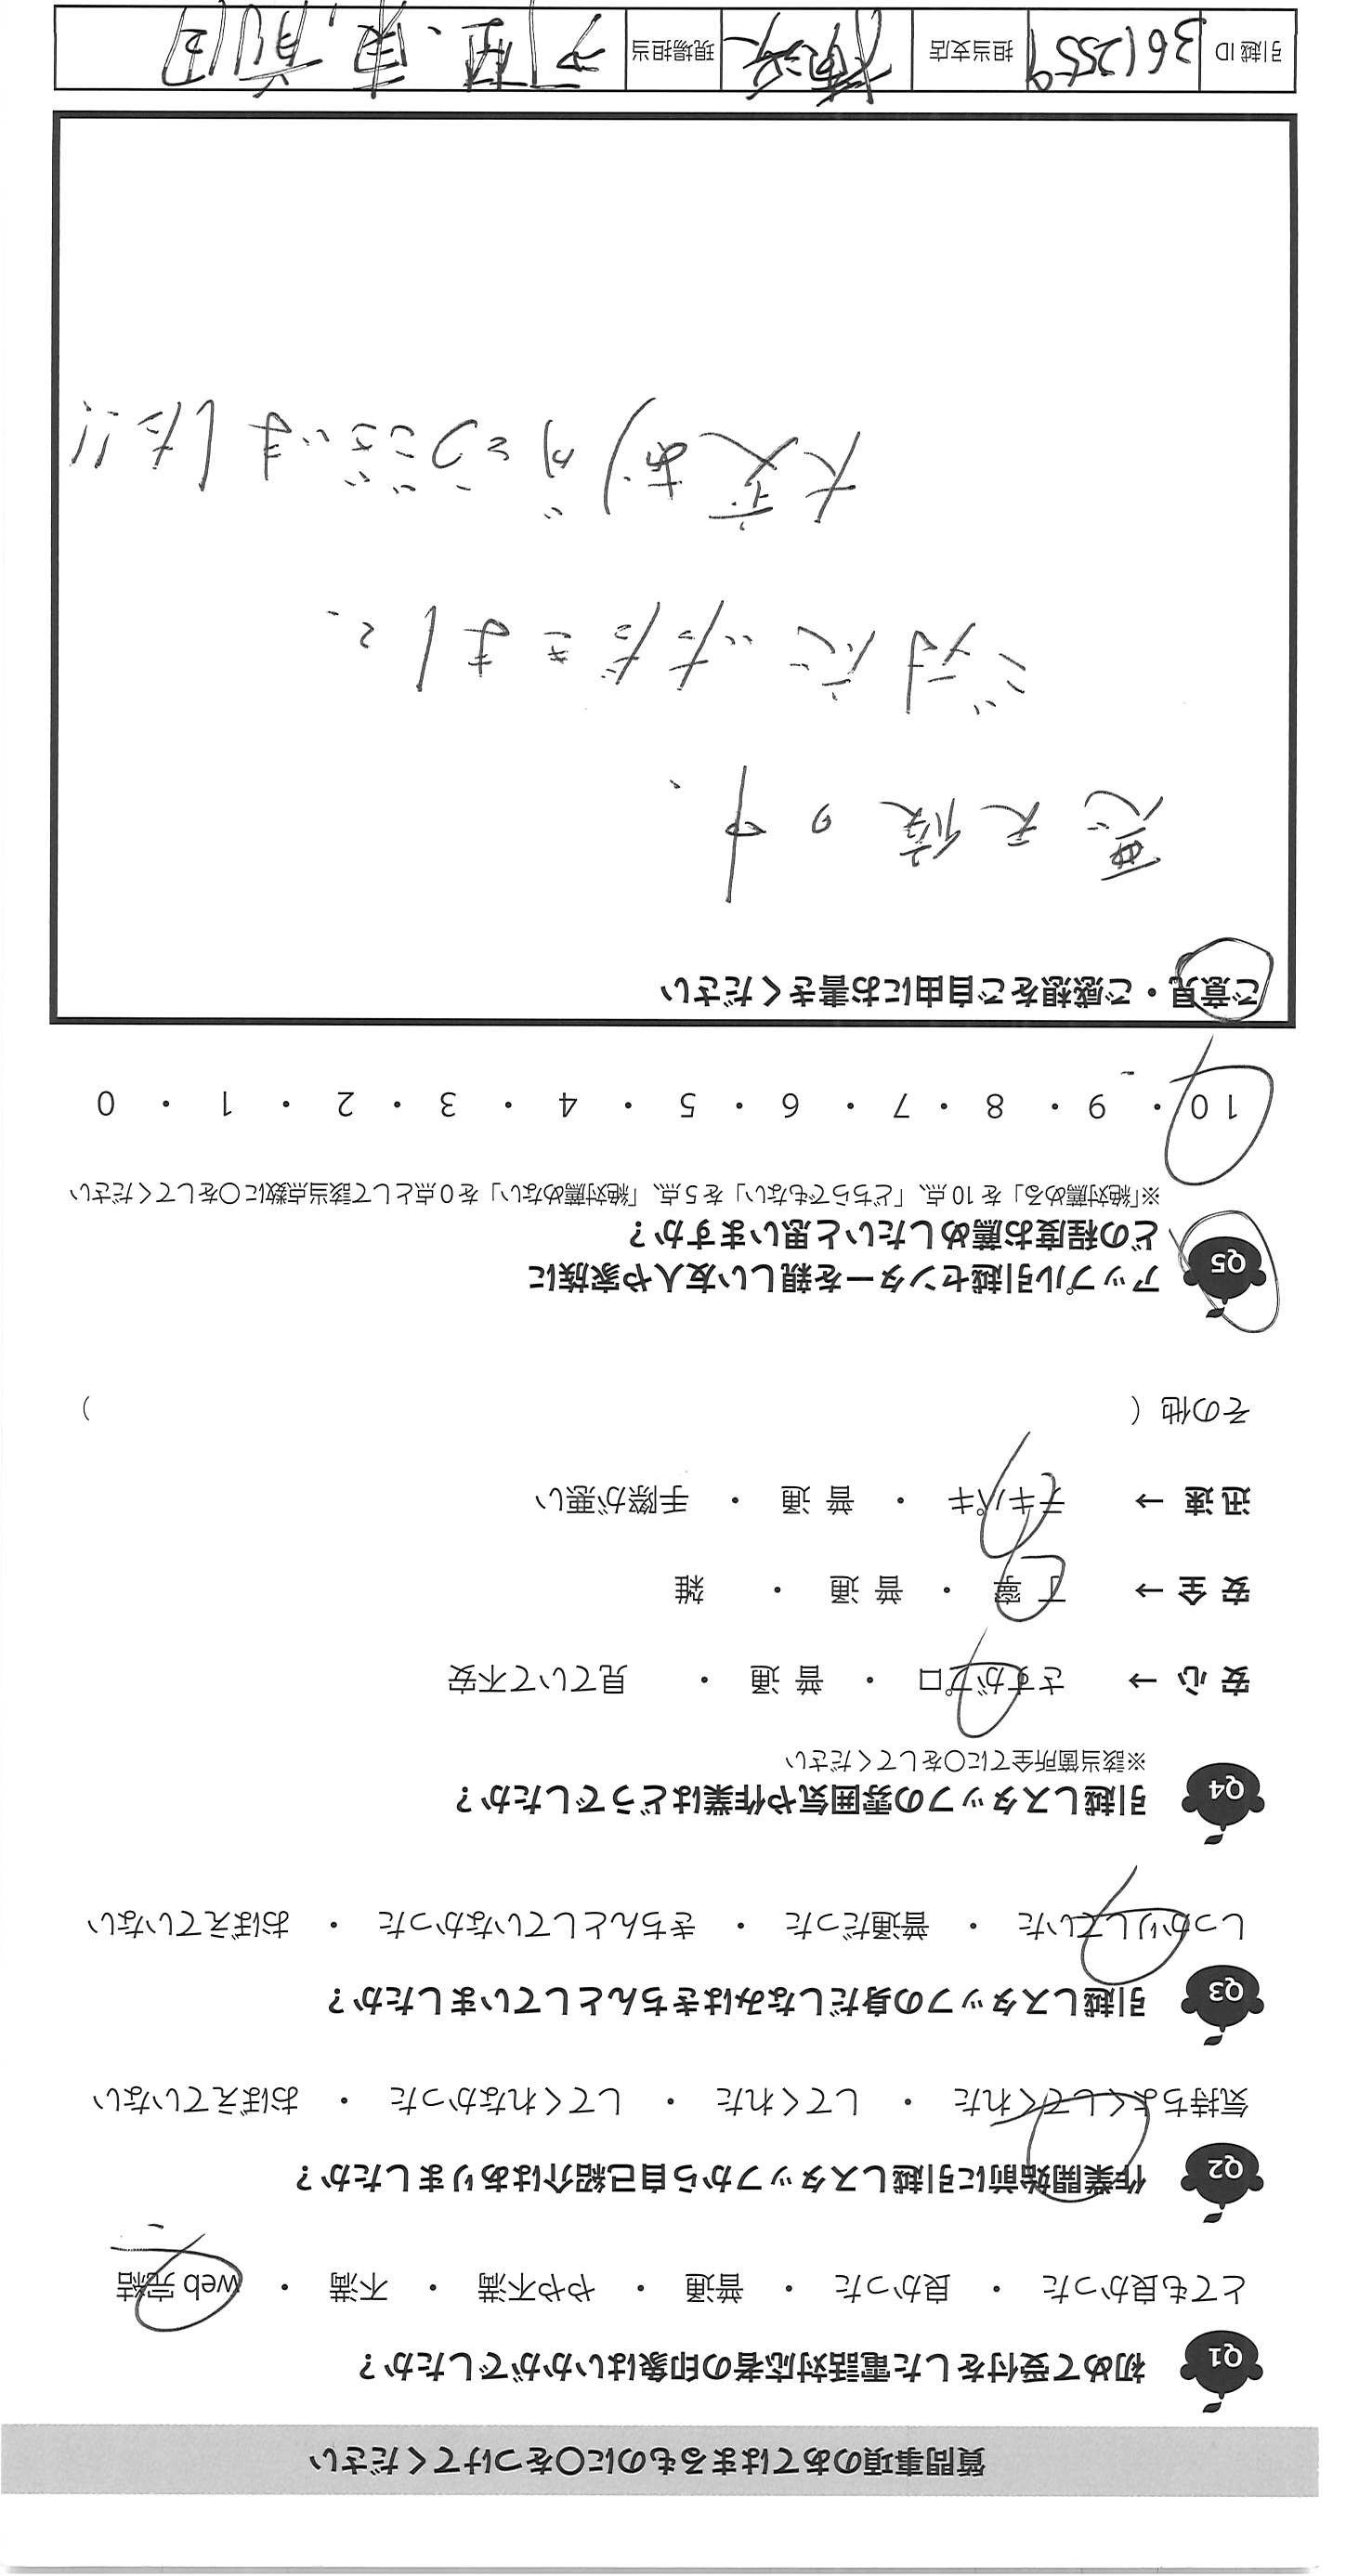 質問事項のあてはまるものに〇をつけてください
Q1 初めて受付をした電話対応者の印象はいかがでしたか？
とても良かった ・ 良かった ・ 普通 ・ やや不満 ・ 不満 ・ web 完結
Q2 作業開始前に引越しスタッフから自己紹介はありましたか？
気持ちよくしてくれた ・ してくれた ・ してくれなかった ・ おぼえていない
Q3 引越しスタッフの身だしなみはきちんとしていましたか？
しっかりしていた ・ 普通だった ・ きちんとしていなかった ・ おぼえていない
Q4 引越しスタッフの雰囲気や作業はどうでしたか？
※該当箇所全てに〇をしてください
安 心 → さすがプロ ・ 普 通 ・ 見ていて不安
安 全 → 丁 寧 ・ 普 通 ・ 雑
迅 速 → テキパキ ・ 普 通 ・ 手際が悪い
その他（ ）
Q5 アップル引越センターを親しい友人や家族に
どの程度お薦めしたいと思いますか？
※「絶対薦める」を 10 点、「どちらでもない」を 5 点、「絶対薦めない」を 0 点として該当点数に〇をしてください
10 ・ 9 ・ 8 ・ 7 ・ 6 ・ 5 ・ 4 ・ 3 ・ 2 ・ 1 ・ 0
ご意見・ご感想をご自由にお書きください
悪天候の中、
ご対応いただきまして、
大変ありがとうございました!!
引越 ID 3612559 担当支店 現場担当